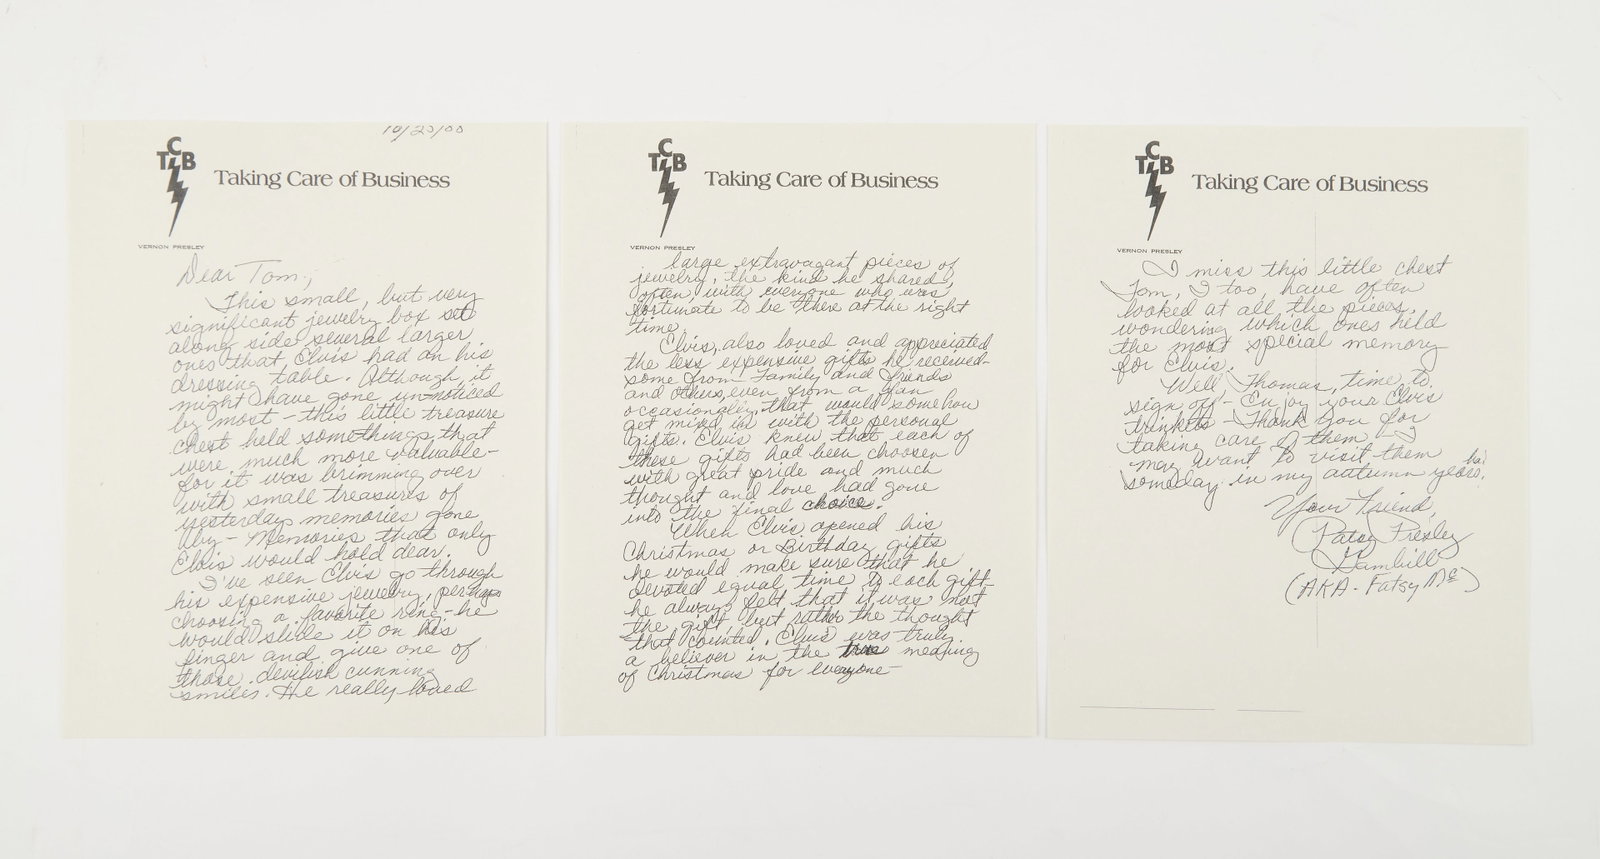 10/23/00
TCB
Taking Care of Business
VERNON PRESLEY
Dear Tom,,
This small, but very
significant jewelry box set
along side several larger
ones that Elvis had on his
dressing table. Although, it
might have gone un-noticed
by most - this little treasure
chest held somethings that
were much more valuable -
for it was brimming over
with small treasures of
yesterdays memories gone
by - Memories that only
Elvis would hold dear.
I've seen Elvis go through
his expensive jewelry, perhaps
choosing a favorite ring - he
would slide it on his
finger and give one of
those devilish cunning
smiles. He really loved
TCB
Taking Care of Business
VERNON PRESLEY
large extravagant pieces of
jewelry, the kind he shared,
often with everyone who was
fortunate to be there at the right
time.
Elvis, also loved and appreciated
the less expensive gifts he received -
some from Family and friends
and others, even from a fan
occasionally that would somehow
get mixed in with the personal
gifts. Elvis knew that each of
these gifts had been choosen
with great pride and much
thought and love had gone
into the final choice.
When Elvis opened his
Christmas or Birthday gifts
he would make sure that he
devoted equal time to each gift -
he always felt that it was not
the gift, but rather the thought
that counted. Elvis was truly
a believer in the meaning
of Christmas for everyone -
TCB
Taking Care of Business
VERNON PRESLEY
I miss this little chest
Tom, I too, have often
looked at all the pieces,
wondering which ones held
the most special memory
for Elvis.
Well, Thomas, time to
sign off - Enjoy your Elvis
trinkets - Thank you for
taking care of them. I
may want to visit them
someday in my autumn years, ha!
Your Friend,
Patsy Presley
Gambill
(AKA - Fatsy Mc)